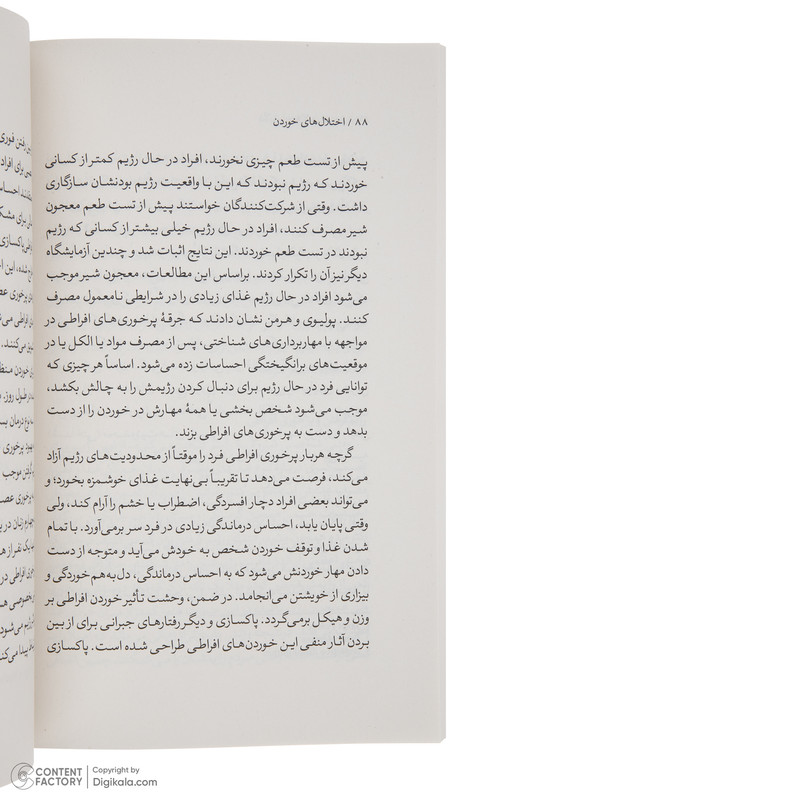 ۸۸ / اختلال‌های خوردن
پیش از تست طعم چیزی نخورند، افراد در حال رژیم کمتر از کسانی
خوردند که رژیم نبودند که این با واقعیت رژیم بودنشان سازگاری
داشت. وقتی از شرکت‌کنندگان خواستند پیش از تست طعم معجون
شیر مصرف کنند، افراد در حال رژیم خیلی بیشتر از کسانی که رژیم
نبودند در تست طعم خوردند. این نتایج اثبات شد و چندین آزمایشگاه
دیگر نیز آن را تکرار کردند. براساس این مطالعات، معجون شیر موجب
می‌شود افراد در حال رژیم غذای زیادی را در شرایطی نامعمول مصرف
کنند. پولیوی و هرمن نشان دادند که جرقهٔ پرخوری‌های افراطی در
مواجهه با مهاربرداری‌های شناختی، پس از مصرف مواد یا الکل یا در
موقعیت‌های برانگیختگی احساسات زده می‌شود. اساساً هر چیزی که
توانایی فرد در حال رژیم برای دنبال کردن رژیمش را به چالش بکشد،
موجب می‌شود شخص بخشی یا همهٔ مهارش در خوردن را از دست
بدهد و دست به پرخوری‌های افراطی بزند.
گرچه هربار پرخوری افراطی فرد را موقتاً از محدودیت‌های رژیم آزاد
می‌کند، فرصت می‌دهد تا تقریباً بی‌نهایت غذای خوشمزه بخورد؛ و
می‌تواند بعضی افراد دچار افسردگی، اضطراب یا خشم را آرام کند، ولی
وقتی پایان یابد، احساس درماندگی زیادی در فرد سر برمی‌آورد. با تمام
شدن غذا و توقف خوردن شخص به خودش می‌آید و متوجه از دست
دادن مهار خوردنش می‌شود که به احساس درماندگی، دل‌به‌هم‌خوردگی و
بیزاری از خویشتن می‌انجامد. در ضمن، وحشت تأثیر خوردن افراطی بر
وزن و هیکل برمی‌گردد. پاکسازی و دیگر رفتارهای جبرانی برای از بین
بردن آثار منفی این خوردن‌های افراطی طراحی شده است. پاکسازی
CONTENT FACTORY
Copyright by
Digikala.com